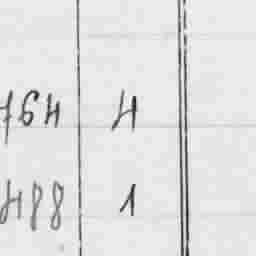 764 4
488 1